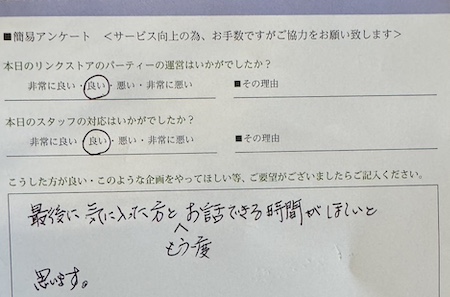 ■簡易アンケート　＜サービス向上の為、お手数ですがご協力をお願い致します＞
本日のリンクストアのパーティーの運営はいかがでしたか？
非常に良い・良い・悪い・非常に悪い　■その理由
本日のスタッフの対応はいかがでしたか？
非常に良い・良い・悪い・非常に悪い　■その理由
こうした方が良い・このような企画をやってほしい等、ご要望がございましたらご記入ください。
最後に気に入った方とお話できる時間がほしいと
もう一度
思います。